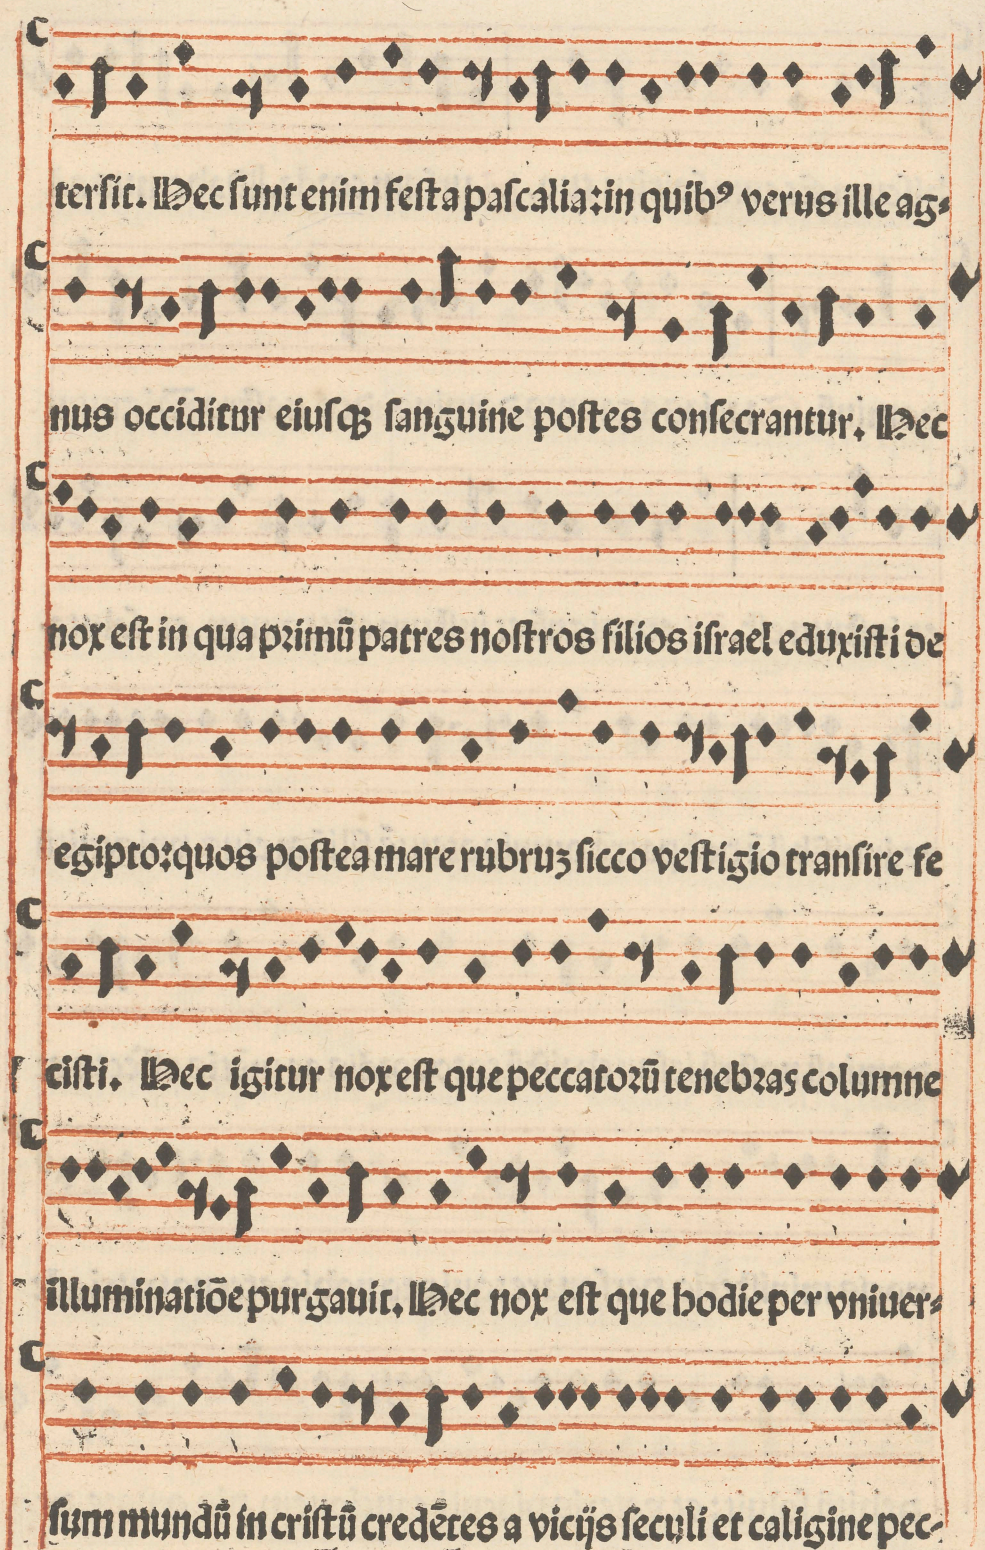 tersit. Hec sunt enim festa pascalia: in quibꝰ verus ille ag⸗
nus occiditur eiusqꝫ sanguine postes consecrantur. Hec
nox est in qua primū patres nostros filios israel eduxisti de
egipto: quos postea mare rubruꝫ sicco vestigio transire fe
cisti. Hec igitur nox est que peccatorū tenebras columne
illuminatiōe purgauit. Hec nox est que hodie per vniuer⸗
sum mundū in cristū credētes a vicijs seculi et caligine pec⸗